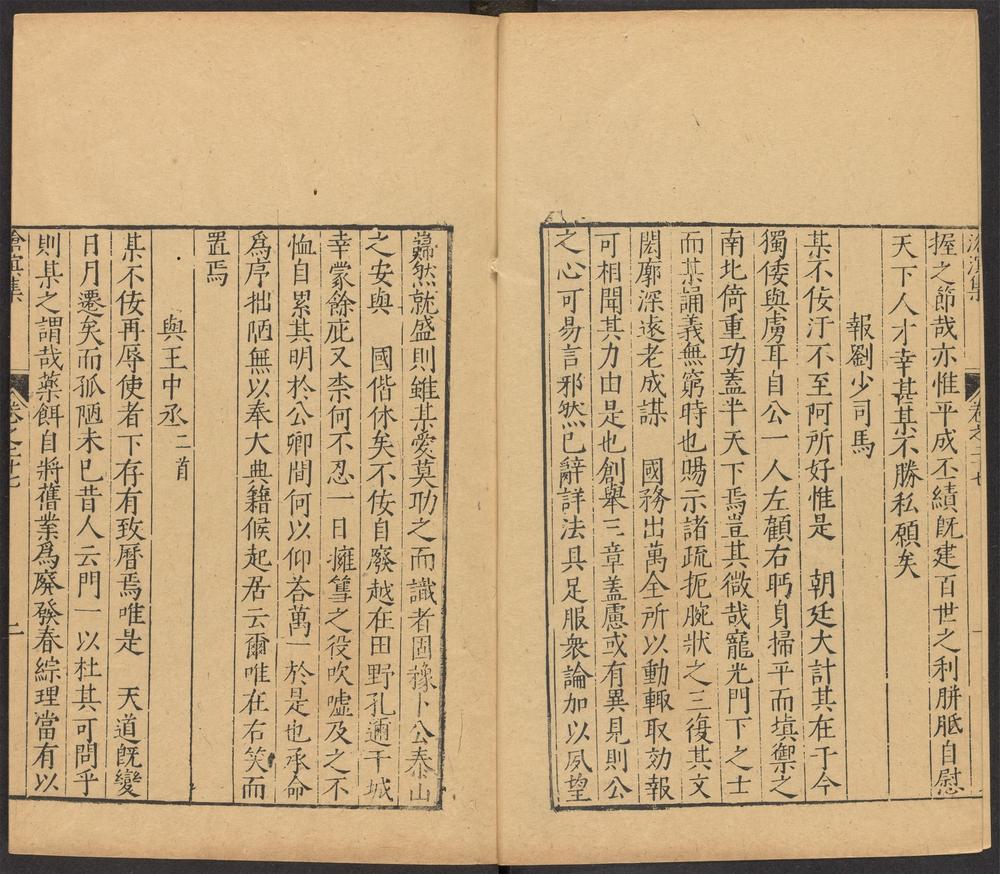 滄溟集
卷之二十七
一
握之節哉亦惟平成丕績既建百世之利胼胝自慰
天下人才幸甚某不勝私願矣
報劉少司馬
某不佞汙不至阿所好惟是 朝廷大計其在于今
獨倭與虜耳自公一人左顧右眄身掃平而塡禦之
南北倚重功蓋半天下焉豈其微哉寵光門下之士
而其誦義無窮時也賜示諸疏扼腕狀之三復其文
閎廓深遠老成謀 國務出萬全所以動輒取効報
可相聞其力由是也創舉三章蓋慮或有異見則公
之心可易言邪然已辭詳法具足服衆論加以夙望
巋然就盛則雖某愛莫助之而識者固豫卜公泰山
之安與 國偕休矣不佞自廢越在田野孔邇干城
幸蒙餘庇又柰何不忍一日擁篲之役吹噓及之不
恤自累其明於公卿間何以仰荅萬一於是也承命
爲序拙陋無以奉大典籍候起居云爾唯在右笑而
置焉
與王中丞二首
某不佞再辱使者下存有致曆焉唯是 天道既變
日月遷矣而孤陋未已昔人云門一以杜其可問乎
則某之謂哉藥餌自將舊業爲廢發春綜理當有以
滄溟集
卷之二十七
二